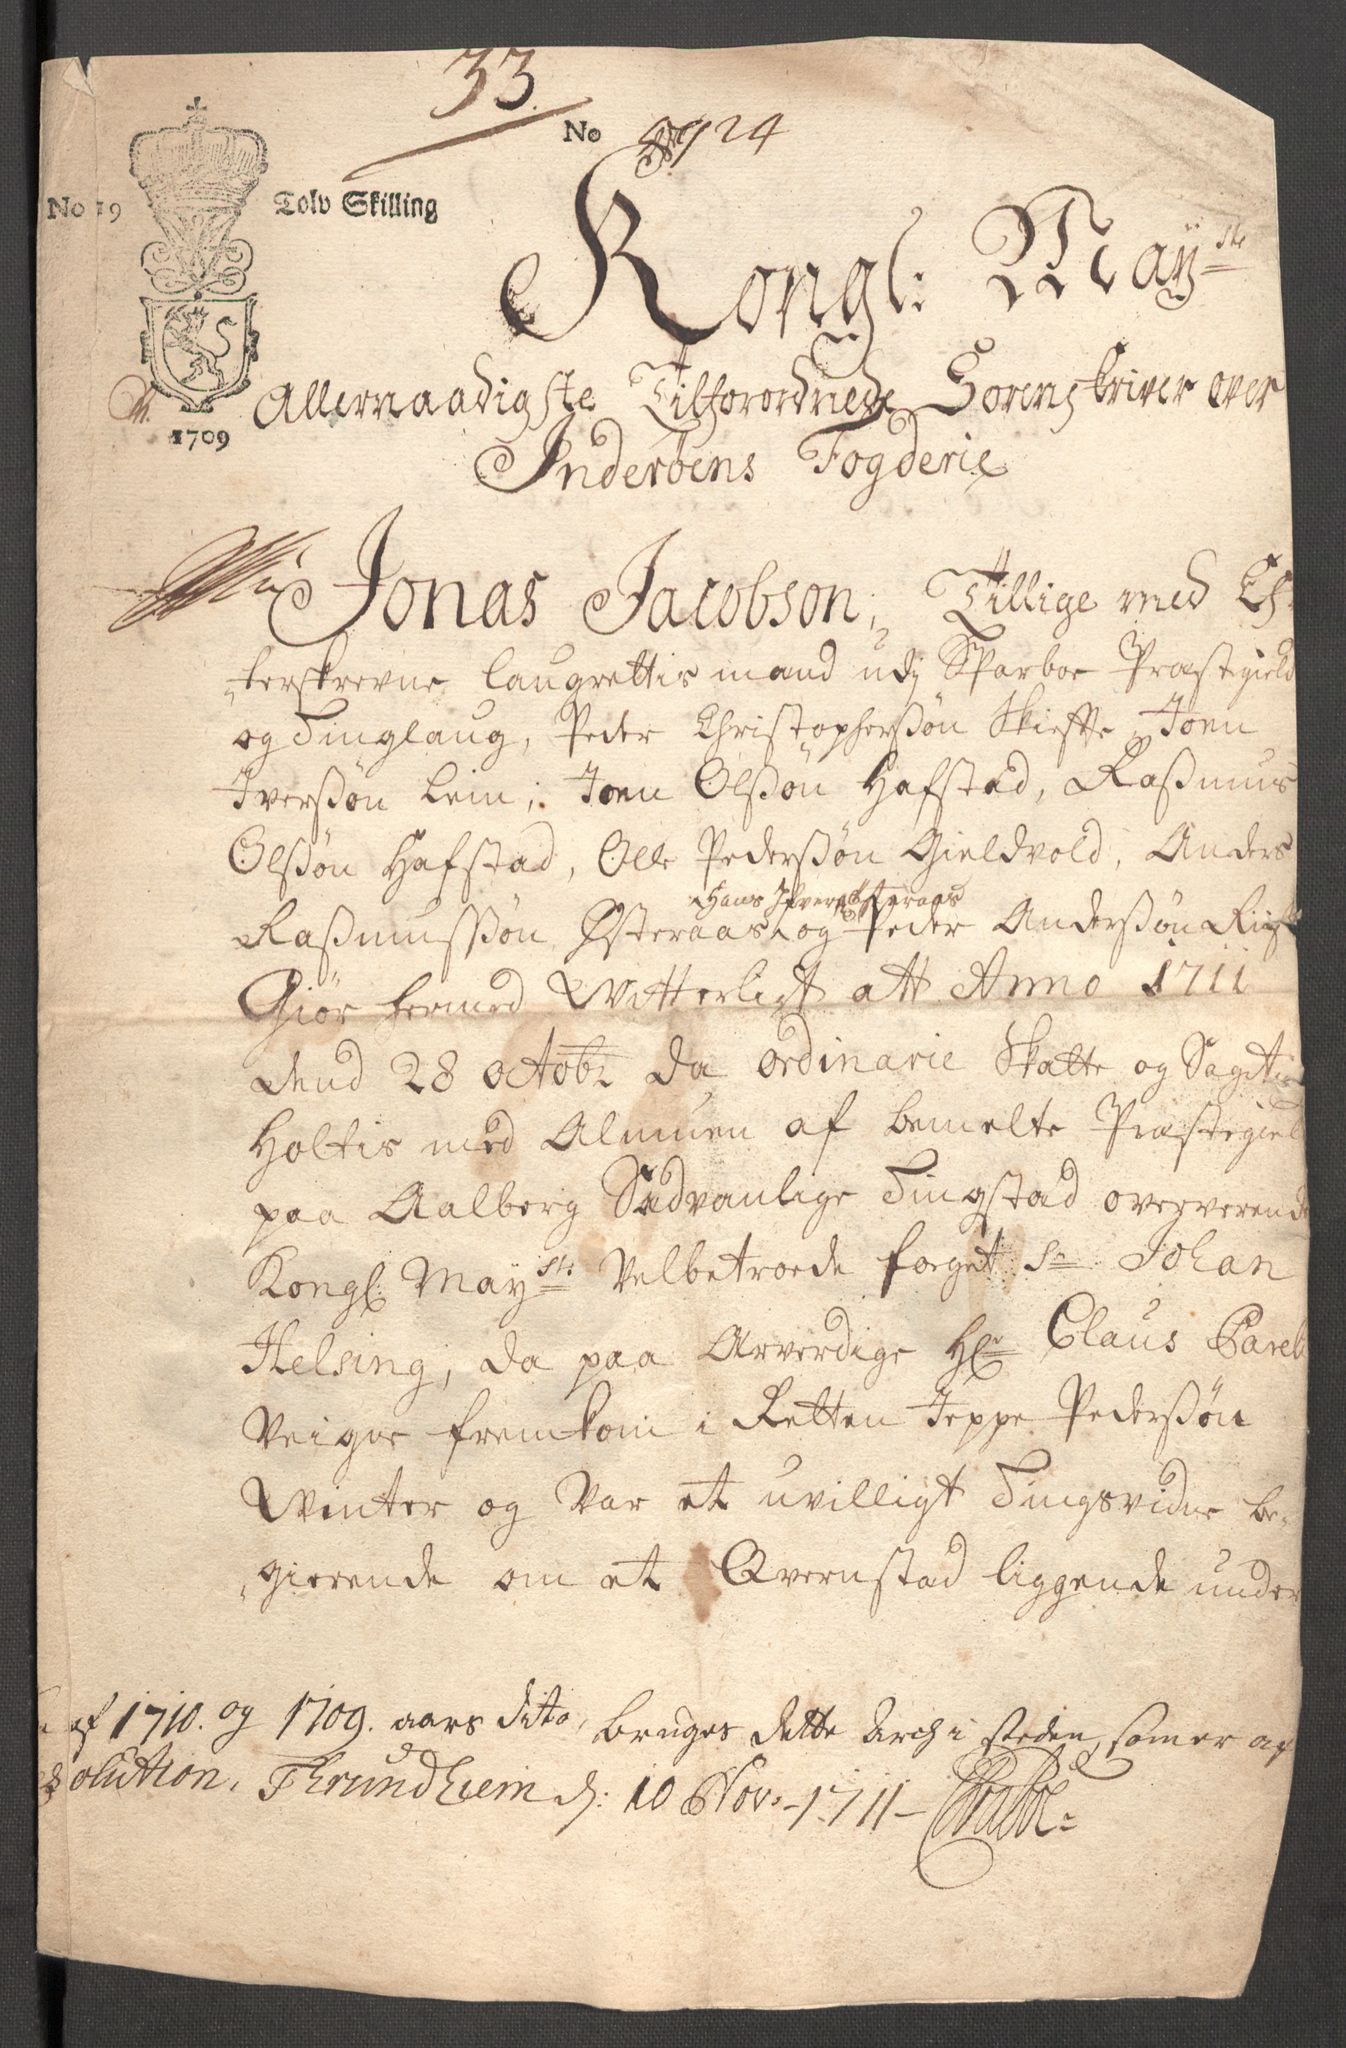 33.
No 4924
No 19 Tolv Skilling
1709
Kongl: May ste
Allernaadigste Tilforordnede Sorenskriver over
Inderöens Fogderie
Jonas Jacobson; Tillige med Ef-
terskrevne laugrettis mænd udj Sparboe Præstegield
og Tinglaug, Peder Christophersøn Skieffte, Joen
Iversøn Lein; Joen Olsßøn Hafstad, Raßmus
Olßøn Hafstad, Olle Pederßøn Gieldvold, Anders
Hans Ifver Østeraas
Raßmusßøn Østeraas og Peder Anderßøn
Giör hermed Witterligt att Anno 1711
dend 28 octobr da ordinarie Skatte og
Holtis med Almuen af bemelte Præstegield
paa Aalberg Sædvanlige Tingstad oververende
Kongl May sts Velbetroede foeget Sr Johan
Helsing, da paa Ærverdige Hr Claus
Veigne fremkom i Retten Jeppe Pederßøn
Winter og var et uvilligt Tingsvidne be-
gierende om et Qvernstad liggende under
af 1710. og 1709. aars dito, bruges dette Arch i steden, som er af
olution, Thrundhiem d: 10 Nov: 1711